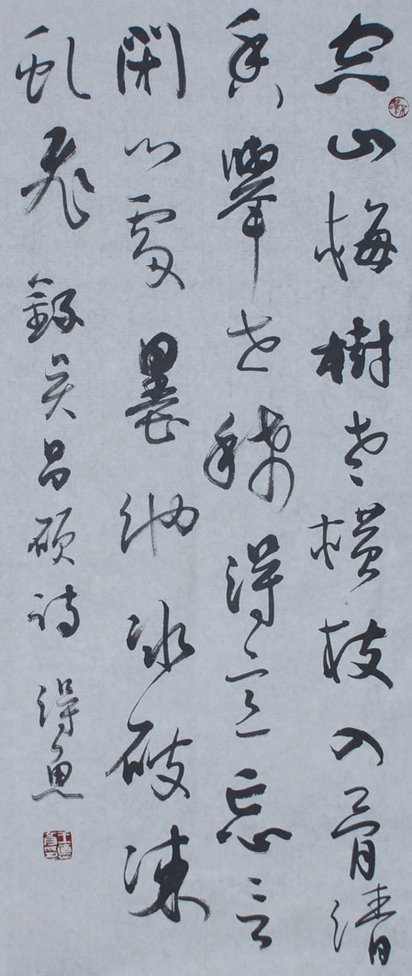 空山梅樹老橫枝入骨清
香舉世稀得意忘言
閉門處墨池冰破凍
虬飛 錄吴昌碩詩 得魚